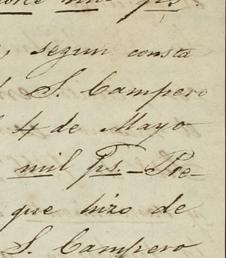 mil ps.
, segun consta
S. Campero
4 de Mayo
mil ps - Pre-
que hizo de
S. Campero